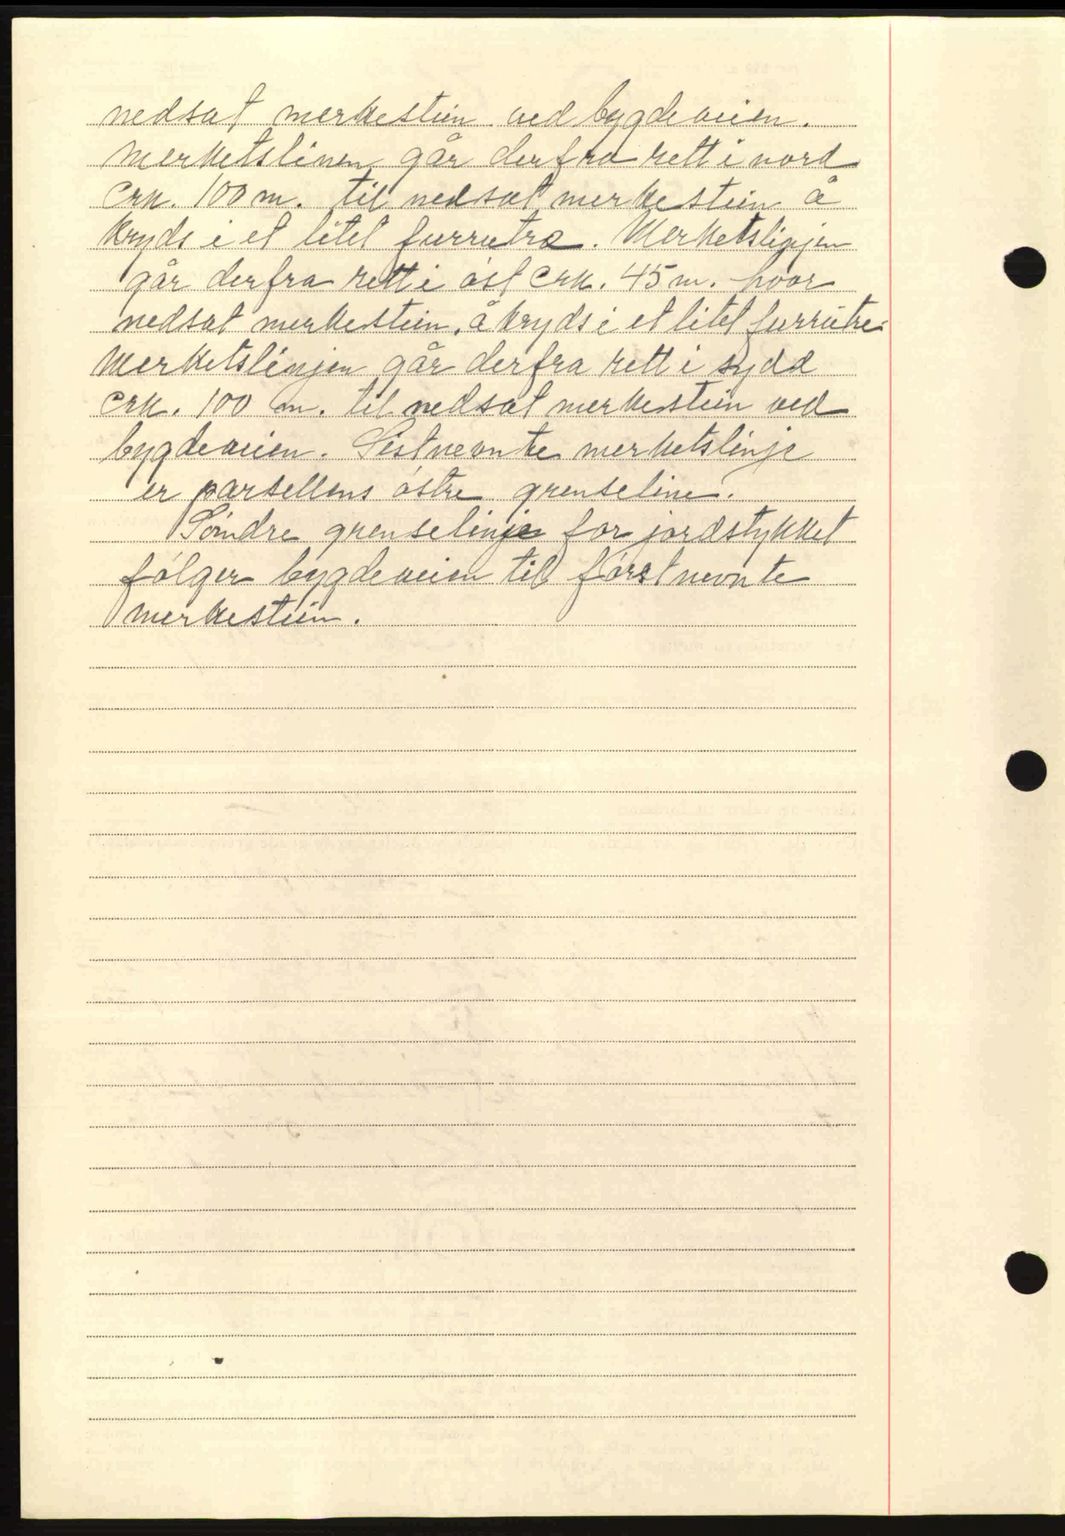 nedsat merkestein ved bygdeveien.
Merketslinen går derfra rett i nord
crk. 100 m. til nedsat merkestein å
kryds i et litet furrutre. Merketslinjen
går derfra rett i øst crk. 45 m. hvor
nedsat merkestein, å kryds i et litet furrutre.
Merketslinjen går derfra rett i sydd
crk. 100 m. til nedsat merkestein ved
bygdeveien. Sistnevnte merketslinje
er parsellens østre grenseline.
Søndre grenselinje for jordstykket
følger bygdeveien til førstnevnte
merkestein.